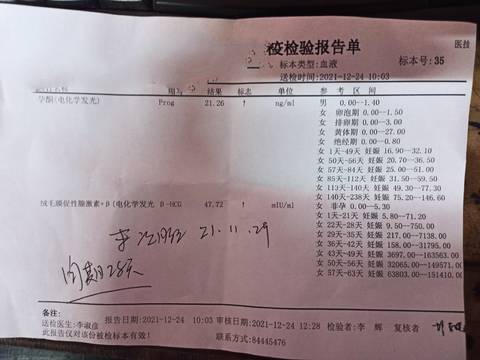 疫检验报告单
医技
标本类型:血液
标本号: 35
送检时间:2021-12-24 10:03
结果 标志 单位 参考区间
孕酮(电化学发光) Prog 21.26 ↑ ng/ml 男 0.00--1.40
女 卵泡期 0.00--1.50
女 排卵期 0.00--3.00
女 黄体期 0.00--27.00
女 绝经期 0.00--0.80
女 1天-49天 妊娠 16.90--32.10
女 50天-56天 妊娠 20.70--36.50
女 57天-84天 妊娠 25.00--61.00
女 85天-112天 妊娠 31.50--59.50
女 113天-140天 妊娠 49.30--77.30
女 140天-238天 妊娠 75.20--146.60
绒毛膜促性腺激素+β(电化学发光 B-HCG 47.72 ↑ mIU/ml 女 非孕 0.00--5.30
女 1天-21天 妊娠 5.80--71.20
女 22天-28天 妊娠 9.50--750.00
女 29天-35天 妊娠 217.00--7138.00
女 36天-42天 妊娠 158.00--31795.00
女 43天-49天 妊娠 3697.00--163563.00
女 50天-56天 妊娠 32065.00--149571.00
女 57天-63天 妊娠 63803.00--151410.00
21.11.29
周期28天
备注:
报告日期:2021-12-24 10:03 审核日期:2021-12-24 12:28 检验者:李 辉 复核者
送检医生:李淑彦
此报告仅对该份被检标本有效! 联系方式:84445476